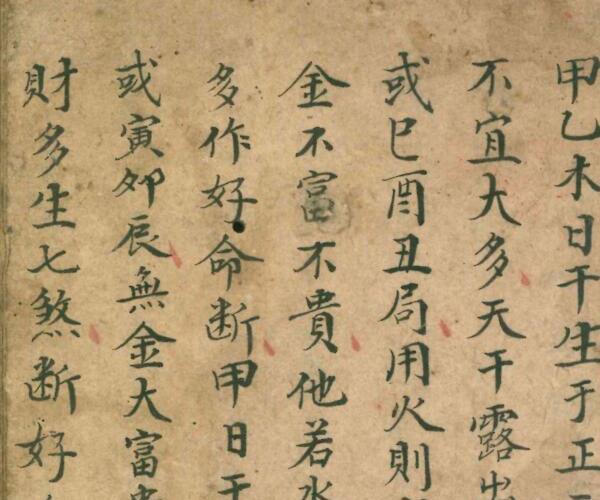 甲乙木日干生于正
不宜大多天干露出
或巳酉丑局用火則
金不富不貴他若水
多作好命斷甲日干
或寅卯辰無金大富貴
財多生七煞斷好